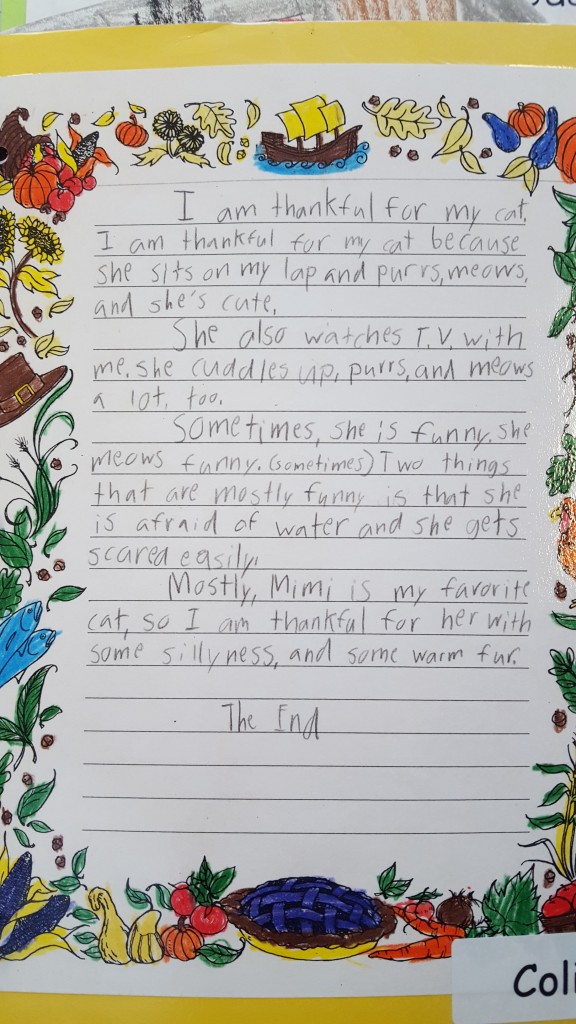 I am thankful for my cat.
I am thankful for my cat because
she sits on my lap and purrs, meows,
and she's cute.
She also watches T.V. with
me. she cuddles up, purrs, and meows
a lot, too.
Sometimes, she is funny. she
meows funny. (sometimes) Two things
that are mostly funny is that she
is afraid of water and she gets
scared easily.
Mostly, Mimi is my favorite
cat, so I am thankful for her with
some sillyness, and some warm fur.
The End
Coli